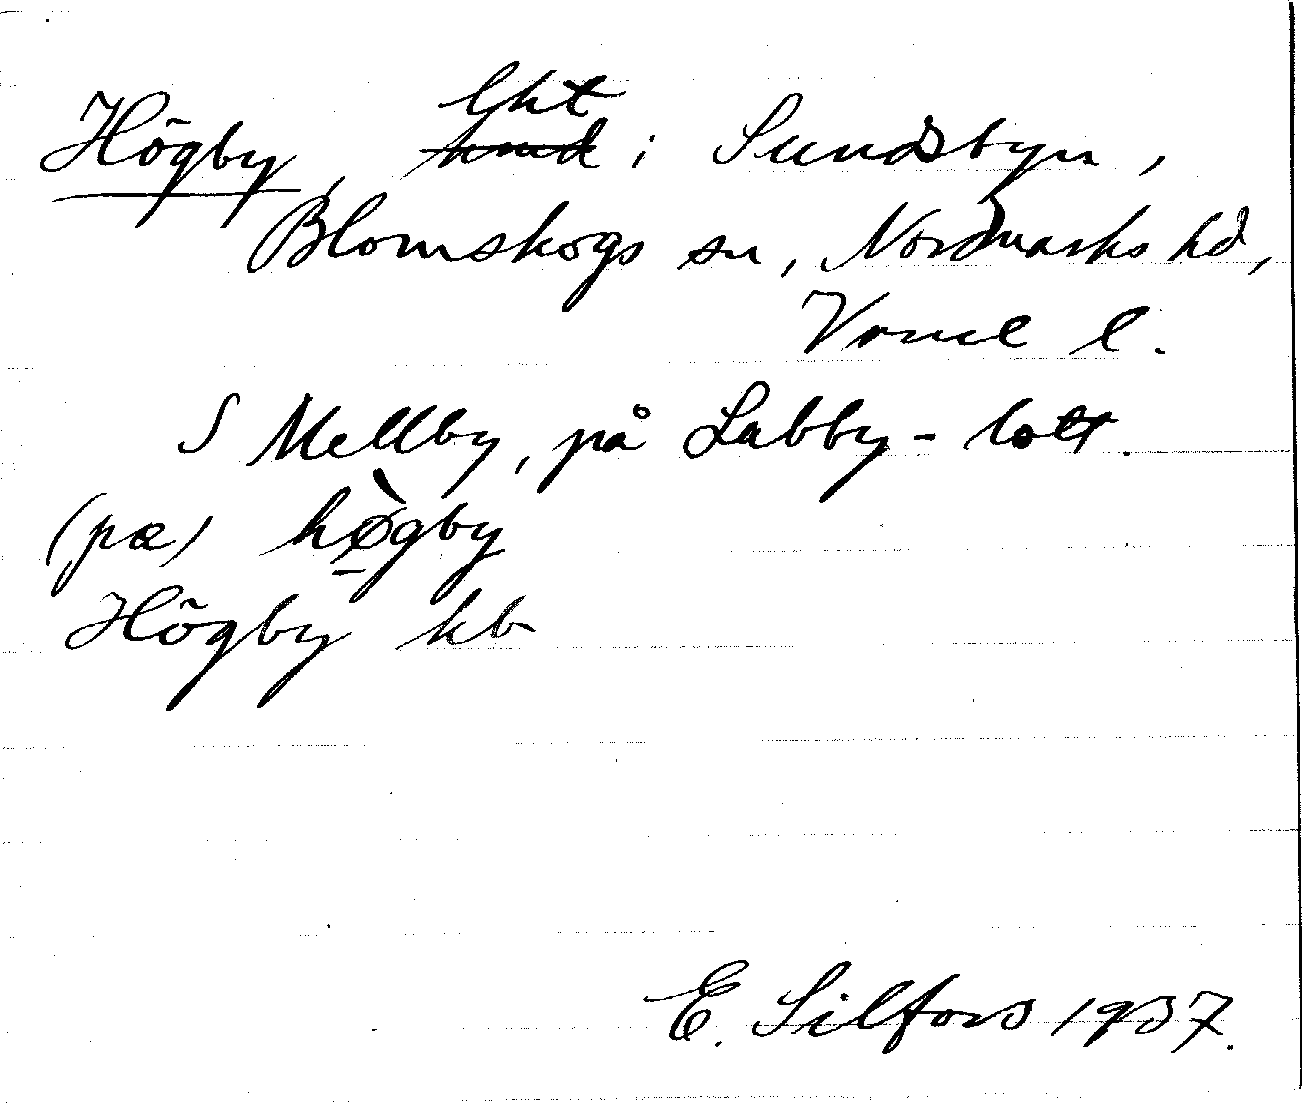 Högby, lht i Sundsbyn,
Blomskogs sn, Nordmarks hd,
Värml l.
S Mellby, på Labby-lott.
(pæ) hø̀gby
Högby kb
E. Silfors 1937.